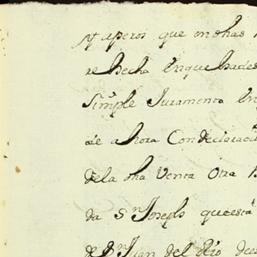 y aperos que en dhas
se hecha
Simple Juramento
de ahora Con declaraci
dela dha Venta Otra
da Sn Joseph que esta
de Dn Juan del Rio